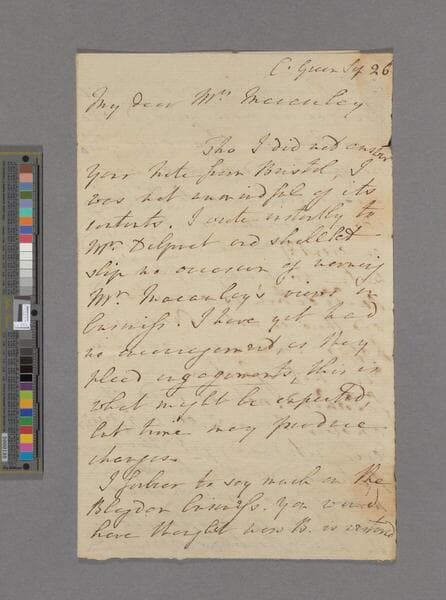 C. Green Sep 26
My dear Mrs. Macauley
Tho I did not answer
your Note from Bristol, I
was not unmindful of its
contents. I wrote instantly to
Mr. and shall let
slip no occasion of
Mr. Macauley's views in
business. I have yet had
no encouragement, as they
plead engagements, this is
what might be expected,
but time may produce
changes.
I forbear to say much on the
Blagdon business. You would
have thought B. is